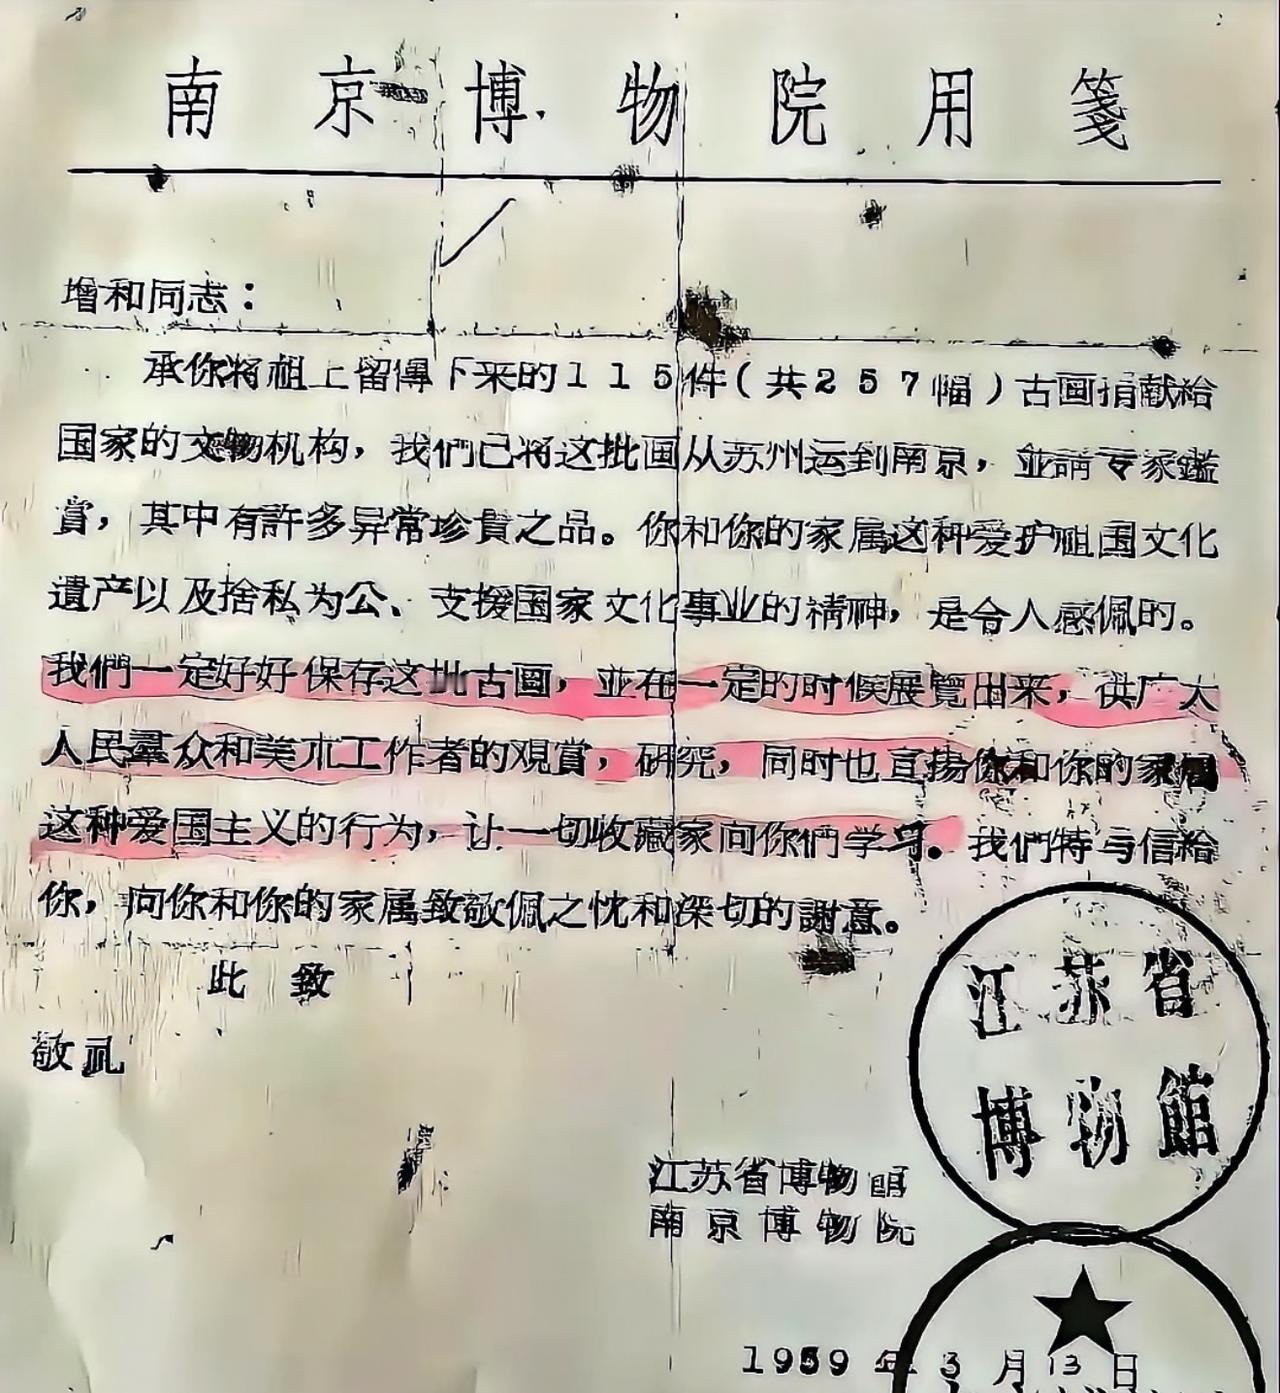 南京博物院用箋
增和同志：
承你将祖上留傳下来的115件（共257幅）古画捐献給
国家的文物机构，我們已将这批画从苏州运到南京，並請专家鑑
賞，其中有許多异常珍貴之品。你和你的家属这种爱护祖国文化
遺产以及捨私为公、支援国家文化事业的精神，是令人感佩的。
我們一定好好保存这批古画，並在一定的时候展覽出来，供广大
人民羣众和美朮工作者的观賞，研究，同时也宣扬你和你的家属
这种爱国主义的行为，让一切收藏家向你們学习。我們特写信給
你，向你和你的家属致敬佩之忱和深切的謝意。
此致
敬礼
江苏省
博物館
江苏省博物館
南京博物院
1959年3月13日